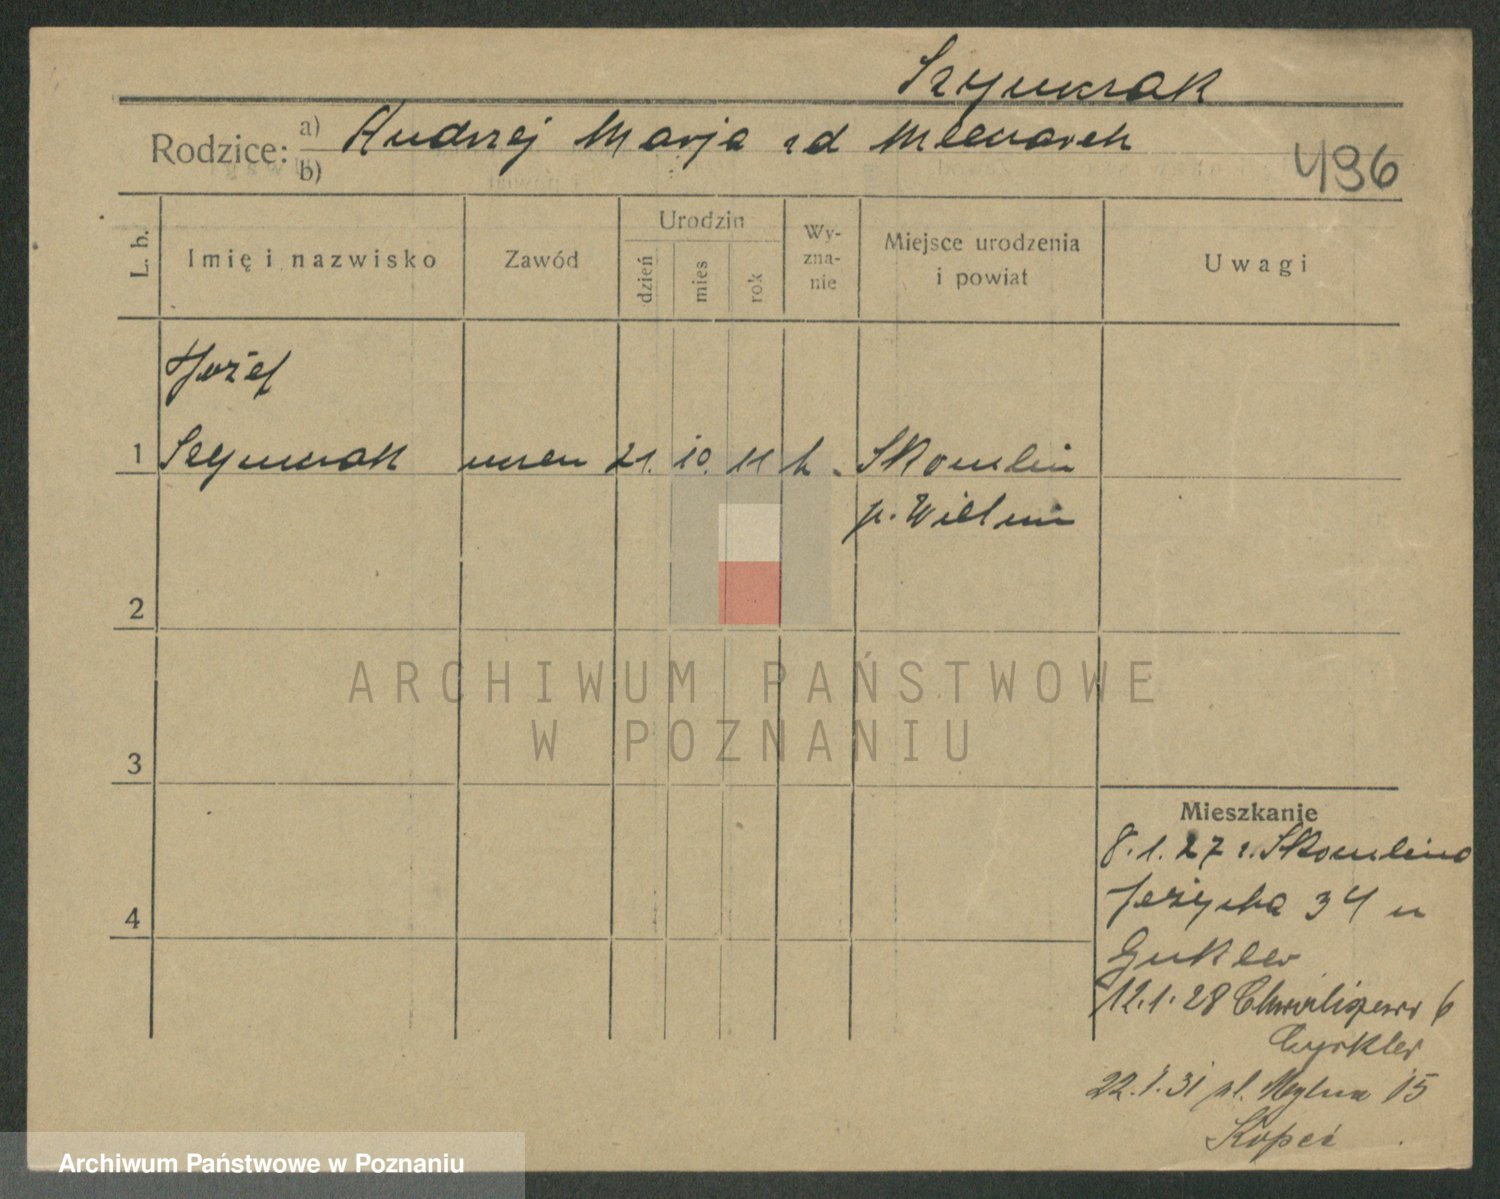 Szymczak
Rodzice: a) Andrzej Marja zd Mlecarek
b)
496
L. b.
Imię i nazwisko
Zawód
Urodzin
dzień
mies
rok
Wy-
zna-
nie
Miejsce urodzenia
i powiat
Uwagi
Józef
1 Szymczak uczeń 21. 10. 11 k. Skomlin
p. Wieluń
2
ARCHIWUM PAŃSTWOWE
W POZNANIU
3
Mieszkanie
8.1.27 z Skomlina
4
Jeżycka 34 u
12.1.28 Chwaliszewo 6
22. 31 pl. 15
Kopeć
Archiwum Państwowe w Poznaniu